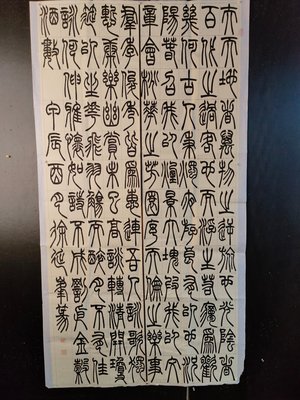 夫天地者萬物之逆旅也光陰者
百代之過客也而浮生若夢爲歡
幾何古人秉燭夜遊良有以也況
陽春召我以煙景大塊假我以文
章會桃花之芳園序天倫之樂事
群季俊秀皆爲惠連吾人詠歌獨
慚康樂幽賞未已高談轉清開瓊
筵以坐花飛羽觴而醉月不有佳
詠何伸雅懷如詩不成罰依金穀
酒數 甲辰四月徐延峯篆